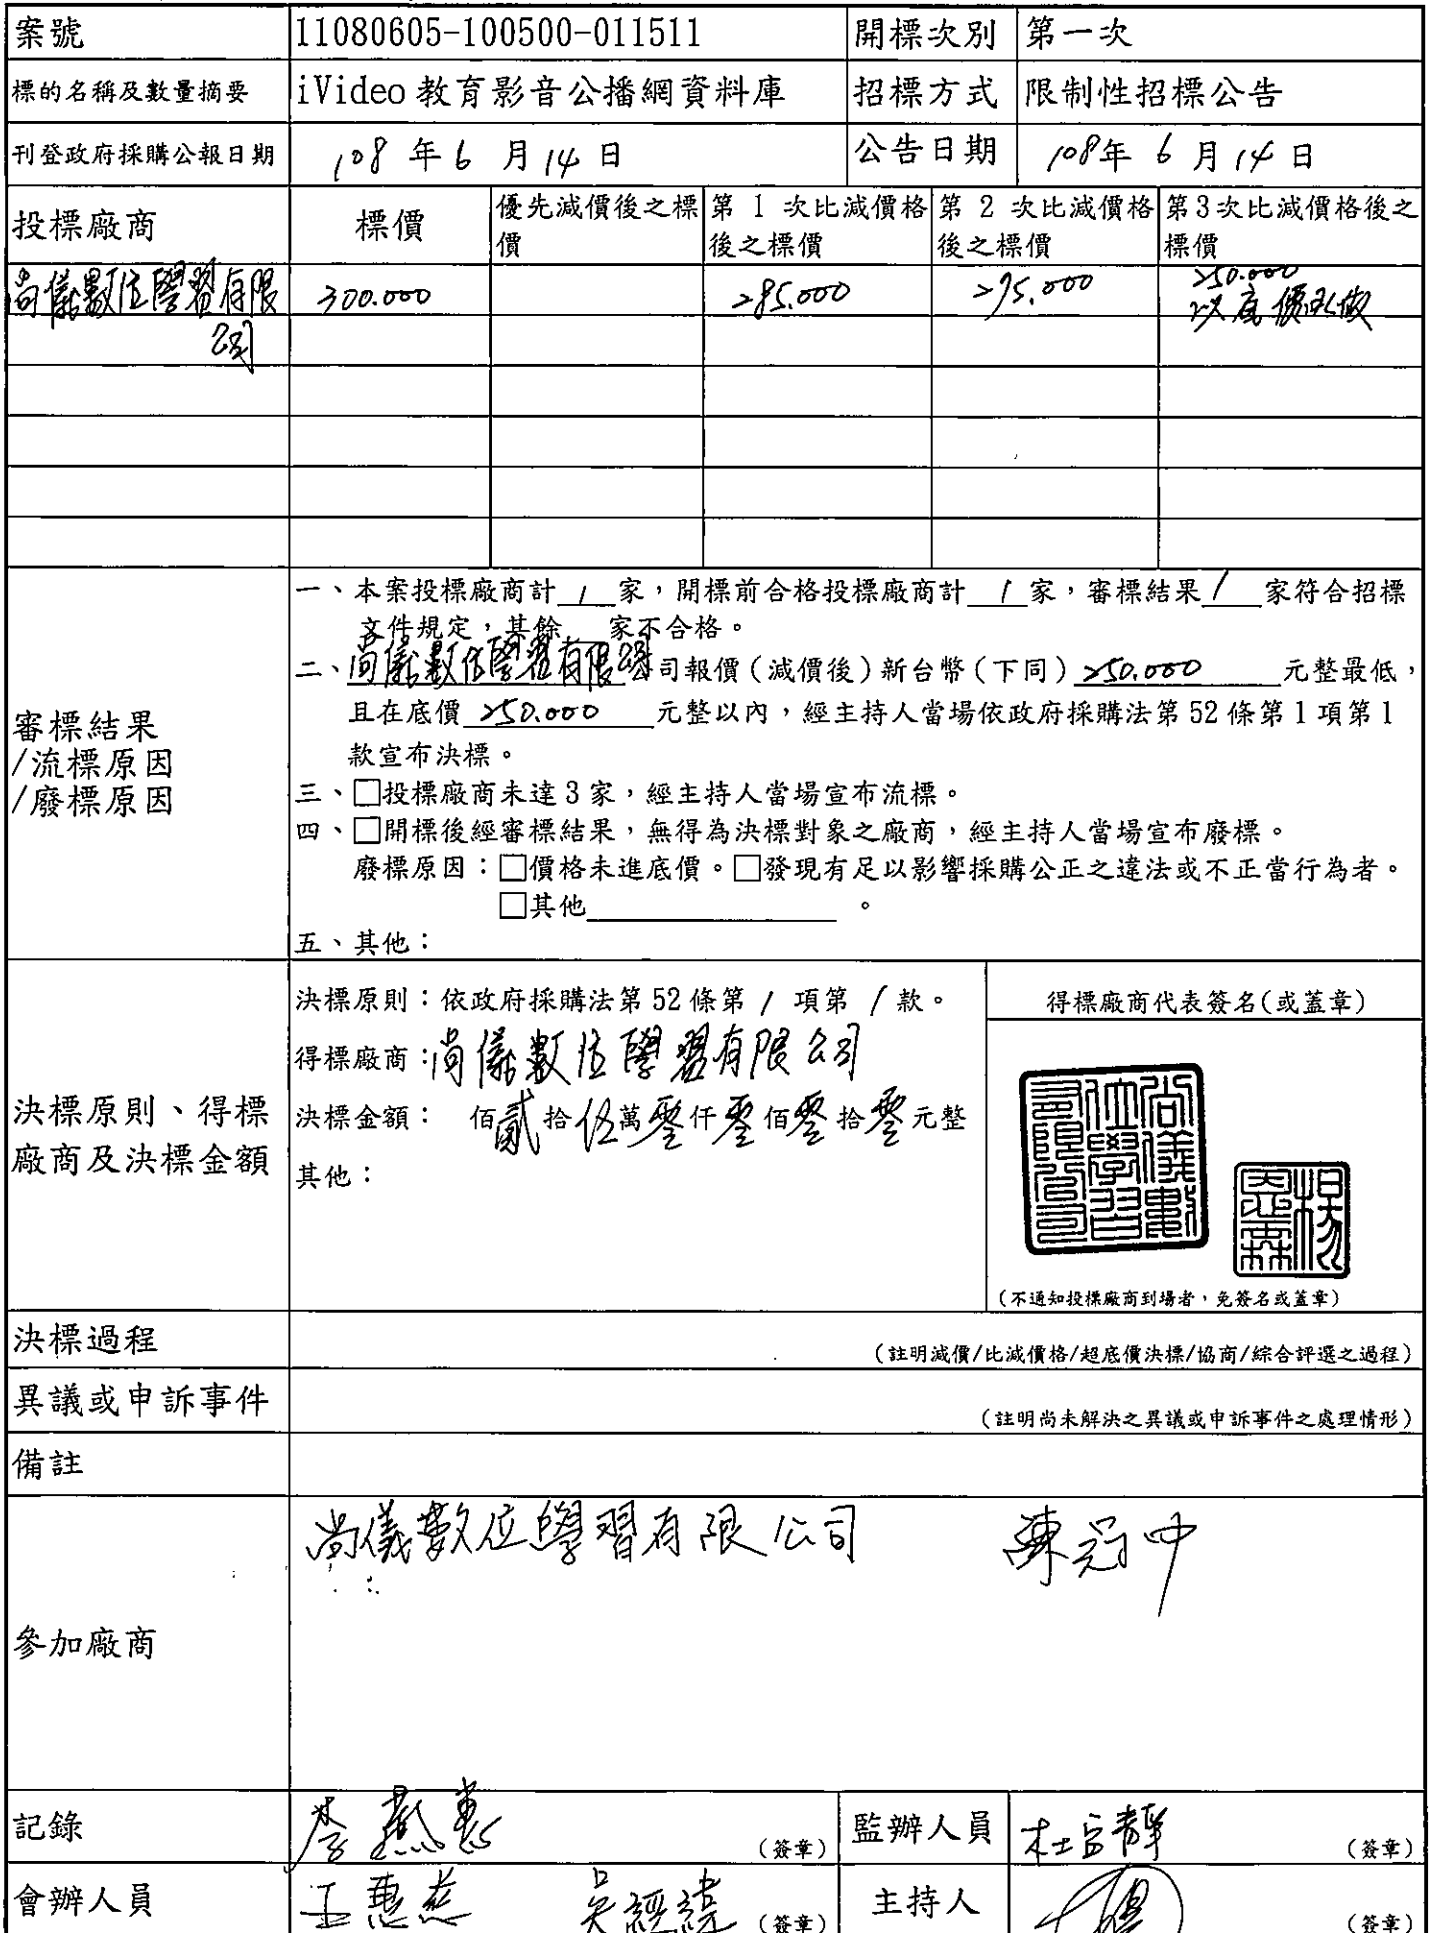 案號 11080605-100500-011511 開標次別 第一次
標的名稱及數量摘要 iVideo 教育影音公播網資料庫 招標方式 限制性招標公告
刊登政府採購公報日期 108 年 6 月 14 日 公告日期 108年 6 月 14 日
投標廠商 標價 優先減價後之標價 第 1 次比減價格後之標價 第 2 次比減價格後之標價 第3次比減價格後之標價
尚儀數位學習有限公司 300.000 285.000 275.000 250.000
以底價承做
審標結果
/流標原因
/廢標原因
一、本案投標廠商計 1 家，開標前合格投標廠商計 1 家，審標結果 1 家符合招標
文件規定，其餘 家不合格。
二、尚儀數位學習有限公司報價（減價後）新台幣（下同）250.000 元整最低，
且在底價 250.000 元整以內，經主持人當場依政府採購法第 52 條第 1 項第 1
款宣布決標。
三、□投標廠商未達 3 家，經主持人當場宣布流標。
四、□開標後經審標結果，無得為決標對象之廠商，經主持人當場宣布廢標。
廢標原因：□價格未進底價。□發現有足以影響採購公正之違法或不正當行為者。
□其他 。
五、其他：
決標原則、得標
廠商及決標金額
決標原則：依政府採購法第 52 條第 1 項第 1 款。
得標廠商：尚儀數位學習有限公司
決標金額： 佰貳拾伍萬零仟零佰零拾零元整
其他：
得標廠商代表簽名(或蓋章)
尚儀數位學習有限公司
(不通知投標廠商到場者，免簽名或蓋章)
決標過程 (註明減價/比減價格/超底價決標/協商/綜合評選之過程)
異議或申訴事件 (註明尚未解決之異議或申訴事件之處理情形)
備註
參加廠商 尚儀數位學習有限公司 陳冠中
記錄 李燕惠 (簽章) 監辦人員 杜宜靜 (簽章)
會辦人員 王惠慈 吳經緯 (簽章) 主持人 (簽章)